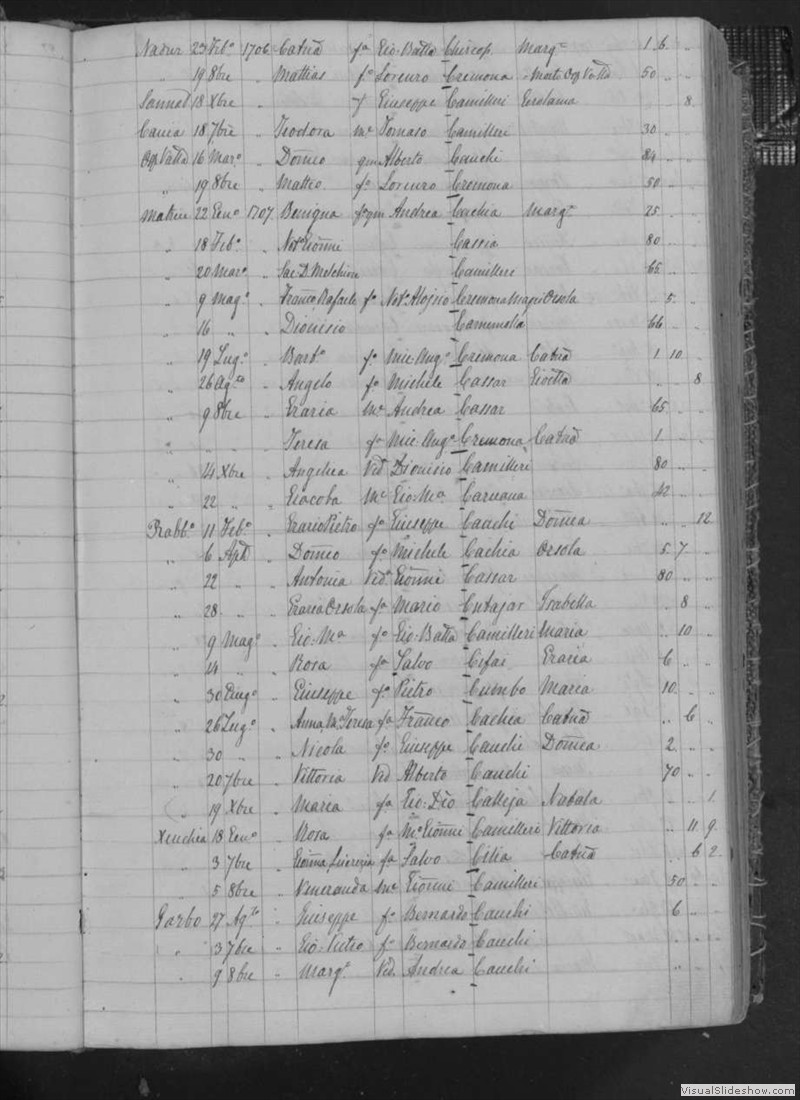 Nadur 23 Feb.º 1706 Catñа fª Gio: Batta Chircop Marg.ª 1 6 „
„ 19 8bre „ Mattias fº Lorenzo Cremona 50 „ „
Sannat 18 Xbre „ f Giuseppe Camilleri Girolama „ 8
Cauia 18 7bre „ Teodora Mº Tomaso Camilleri 30 „
16 Mar.º „ Doñico qm Alberto Cauchi 24 „
„ 19 8bre „ Matteo fº Lorenzo Cremona 50 „
Matrice 22 Gen.º 1707 Benigna fª qm Andrea Cachia Marg.ª 25
„ 18 Feb.º „ Not.º Gioñni Cassia 80 „
„ 20 Mar.º „ Sac: D. Melchiore Camilleri 65 „
„ 9 Mag.º „ Franco, Rafaele fº Not.º Aloysio Cremona Orsola „ 5 „
„ 16 „ „ Dionisio 66 „
„ 19 Lug.º „ Bart.º fº Mic: Ang.º Cremona Catñа 1 10 „
„ 26 Ag.to „ Angelo fº Michele Cassar „ „ 8
„ 9 8bre „ Grazia Mº Andrea Cassar 65 „
„ „ „ Teresa fª Mic: Ang.º Cremona Catñа 1 „
„ 14 Xbre „ Angelica Vid. Dionisio Camilleri 80 „
„ 22 „ „ Giacoba Mº Gio: M.ª Caruana 42 „
Rabb.º 11 Feb.º „ Pietro fº Giuseppe Cauchi Doñica „ „ 12
„ 6 Aple „ Doñico fº Michele Cachia Orsola 5 7 „
„ 22 „ „ Antonia Vid.ª Gioñni Cassar 80 „
„ 28 „ „ Grazia Orsola fª Mario Cutajar Isabella „ 8 „
„ 9 Mag.º „ Gio: M.ª fº Gio: Batta Camilleri Maria „ 10 „
„ 14 „ „ Rosa fª Salvo Cifai Grazia 6 „
„ 30 Giug.º „ Giuseppe fº Pietro Cumbo Maria 10 „
„ 26 Lug.º „ Anna M.ª Teresa fª Franco Cachia Catñа „ 6 „
„ 30 „ „ Nicola fº Giuseppe Cauchi Doñica 2 „ „
„ 20 7bre „ Vittoria Vid. Alberto Cauchi 70 „ „
„ 19 Xbre „ Maria fª Gio: Calleja Natala „ „ 1
Xeuchia 18 Gen.º „ Rosa fª M.º Gioñni Camilleri Vittoria „ 11 9
„ 3 7bre „ Gioñna, Lucrezia fª Salvo Cilia Catñа „ 6 2
„ 5 8bre „ Veneranda Mº Gioñni Camilleri 50 „
Garbo 27 Ag.to „ Giuseppe fº Bernardo Cauchi 6 „
„ 3 7bre „ Gio: Pietro fº Bernardo Cauchi „ „
„ 9 8bre „ Marg.ª Vid. Andrea Cauchi „ „
VisualSlideshow.com